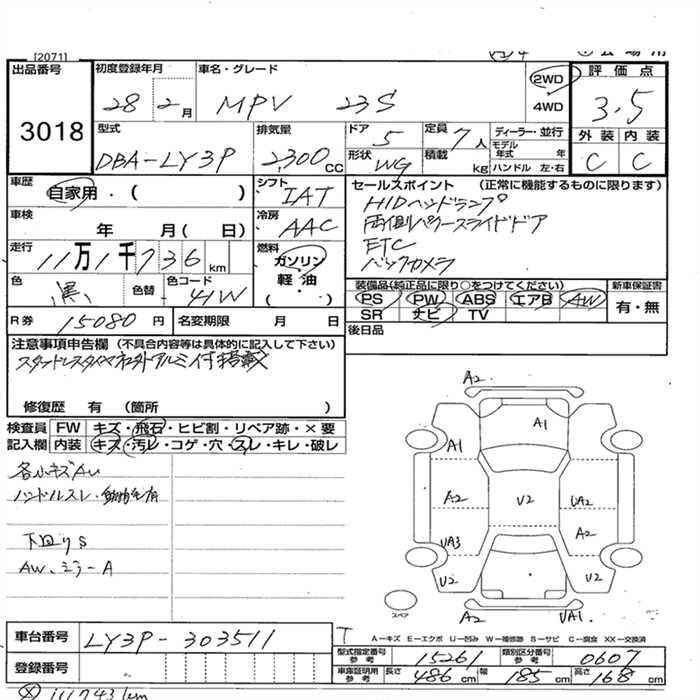 [2071]
出品番号 初度登録年月 車名・グレード 評価点
3018
28年 2月 MPV 23S 2WD 4WD 3.5
外装 内装
C C
型式 排気量 ドア 定員 ディーラー・並行
DBA-LY3P 2300CC 5 7人 モデル年式 年
形状 積載 ハンドル 左・右
WG kg
車歴 自家用・( ) シフト IAT
車検 年 月(日) 冷房 AAC
走行 11万1千736km 燃料 ガソリン 軽油 ( )
色 黒 色替 色コード 41W
R券 15080円 名変期限 月 日
セールスポイント (正常に機能するものに限ります)
HIDヘッドランプ
両側パワースライドドア
ETC
バックカメラ
装備品(純正品に限り○をつけてください) 新車保証書
PS PW ABS エアB AW 有・無
SR ナビ TV
後日品
注意事項申告欄 (不具合内容等は具体的に記入して下さい)
修復歴 有 (箇所 )
検査員 FW キズ・飛石・ヒビ割・リペア跡・×要
記入欄 内装 キズ・汚レ・コゲ・穴・スレ・キレ・破レ
各小キズAU
ハンドルスレ・
下回りS
AW、ミラーA
A2
A1
A1
A2 V2 UA2
A2
UA3
U2 U2
A2 UA1
スペア
T A-キズ E-エクボ U-凹み W-補修跡 S-サビ C-腐食 XX-交換済
車台番号 LY3P-303511
登録番号
型式指定番号 参考 15261 類別区分番号 参考 0607
車庫証明用 参考 長さ 486cm 幅 185cm 高さ 168cm
111743km